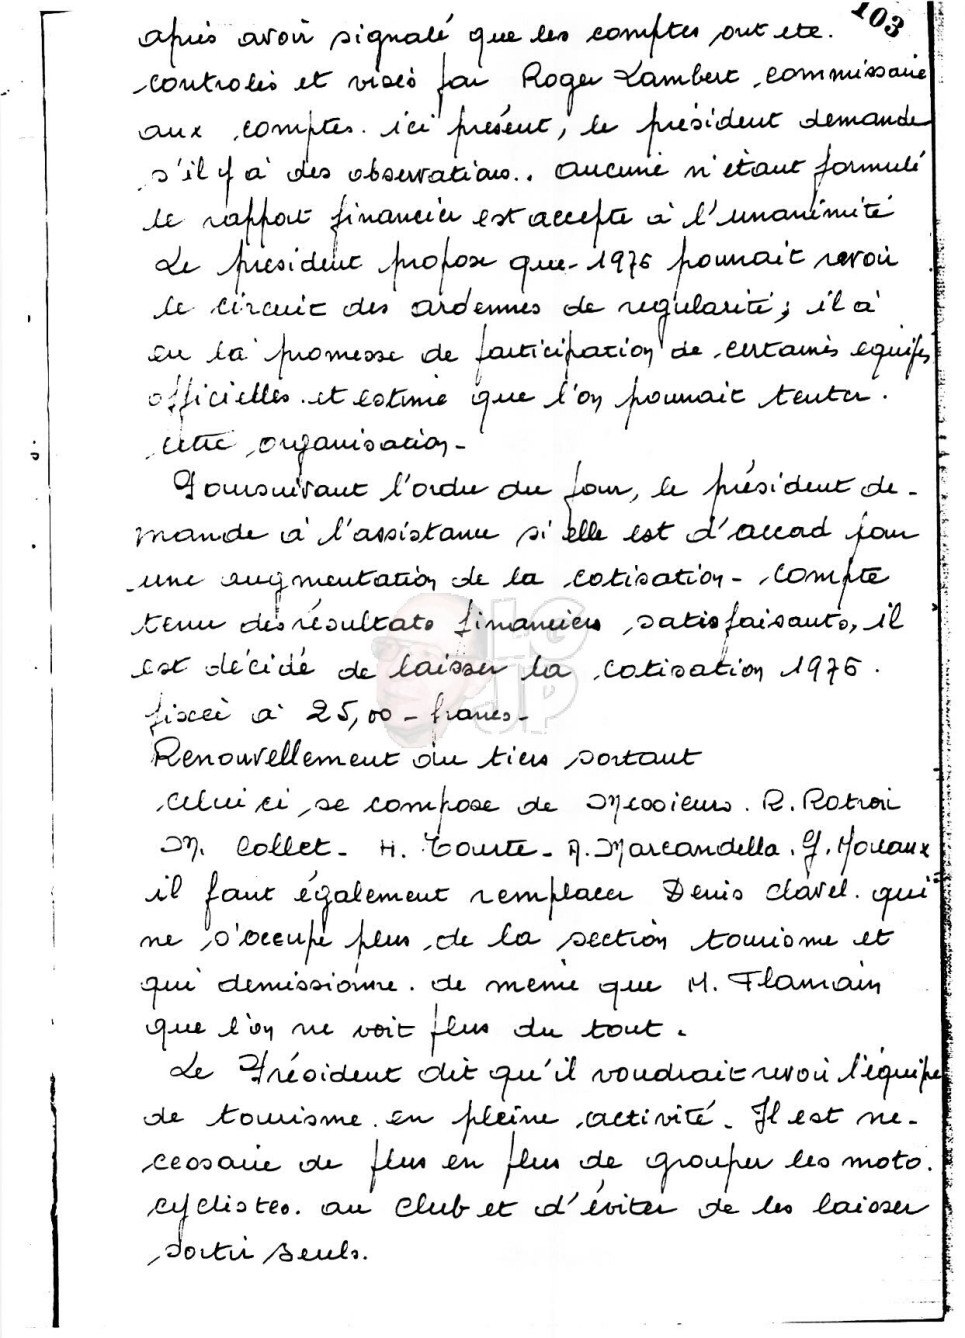 103
après avoir signalé que les comptes ont ete.
controlés et visés par Roger Lambert, commissaire
aux comptes. ici présent, le président demande
s'il y a des observations.. aucune n'étant formulé
le rapport financier est accepte à l'unanimité
Le president propose que - 1976 pourrait revoir
le circuit des ardennes de regularité; il à
eu la promesse de participation de certaines equipes
officielles. et estime que l'on pourrait tenter.
cette organisation -
Poursuivant l'ordre du jour, le président de-
mande à l'assistance si elle est d'accord pour
une augmentation de la cotisation - compte
tenu des résultats financiers satisfaisants, il
est décidé de laisser la cotisation 1976.
fixée à 25,00 - francs -
Renouvellement du tiers sortant
celui ci se compose de Messieurs. R. Rotroi
M. Collet - H. Tourte - A. Marcandella. G. Moreaux
il faut également remplacer Denis Clavel. qui
ne s'occupe plus de la section tourisme et
qui demissionne. de même que M. Flamain
que l'on ne voit plus du tout.
Le Président dit qu'il voudrait revoir l'équipe
de tourisme. en pleine activité. Il est ne-
cessaire de plus en plus de grouper les moto.
cyclistes. au Club et d'éviter de les laisser
sortir seuls.
LG
JP